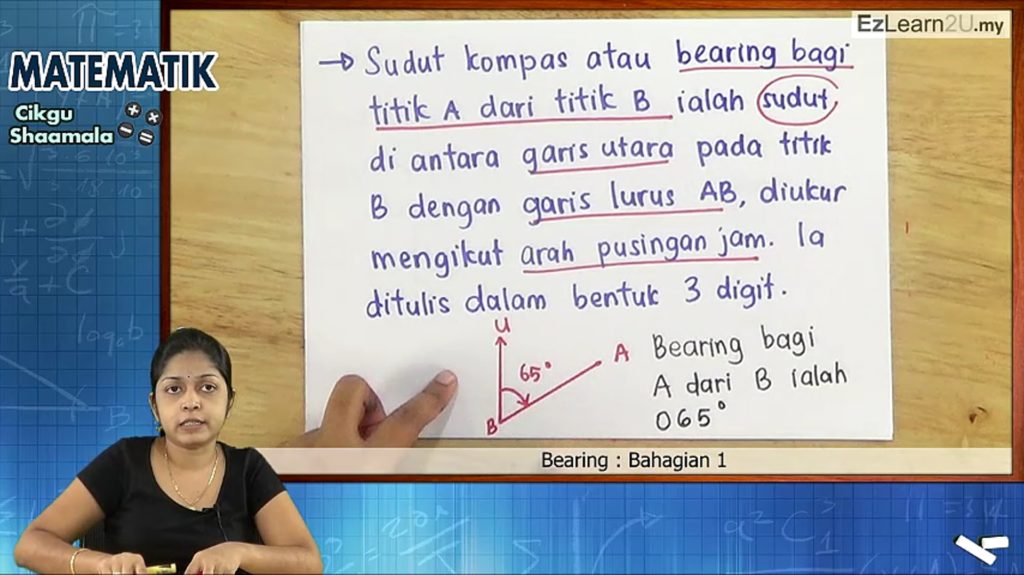 EzLearn2U.my
MATEMATIK
Cikgu
Shaamala
→ Sudut kompas atau bearing bagi
titik A dari titik B ialah sudut
di antara garis utara pada titik
B dengan garis lurus AB, diukur
mengikut arah pusingan jam. Ia
ditulis dalam bentuk 3 digit.
U
65°
A
B
Bearing bagi
A dari B ialah
065°
Bearing : Bahagian 1